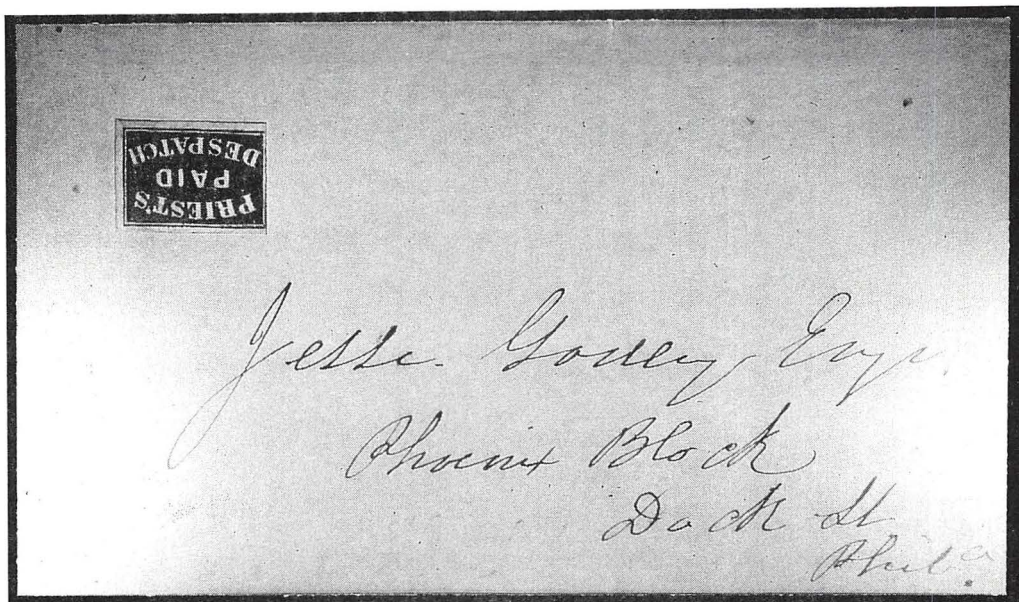 PRIEST'S
PAID
DESPATCH
Jesse Godley Esqr
Phoenix Block
Dock St
Philada